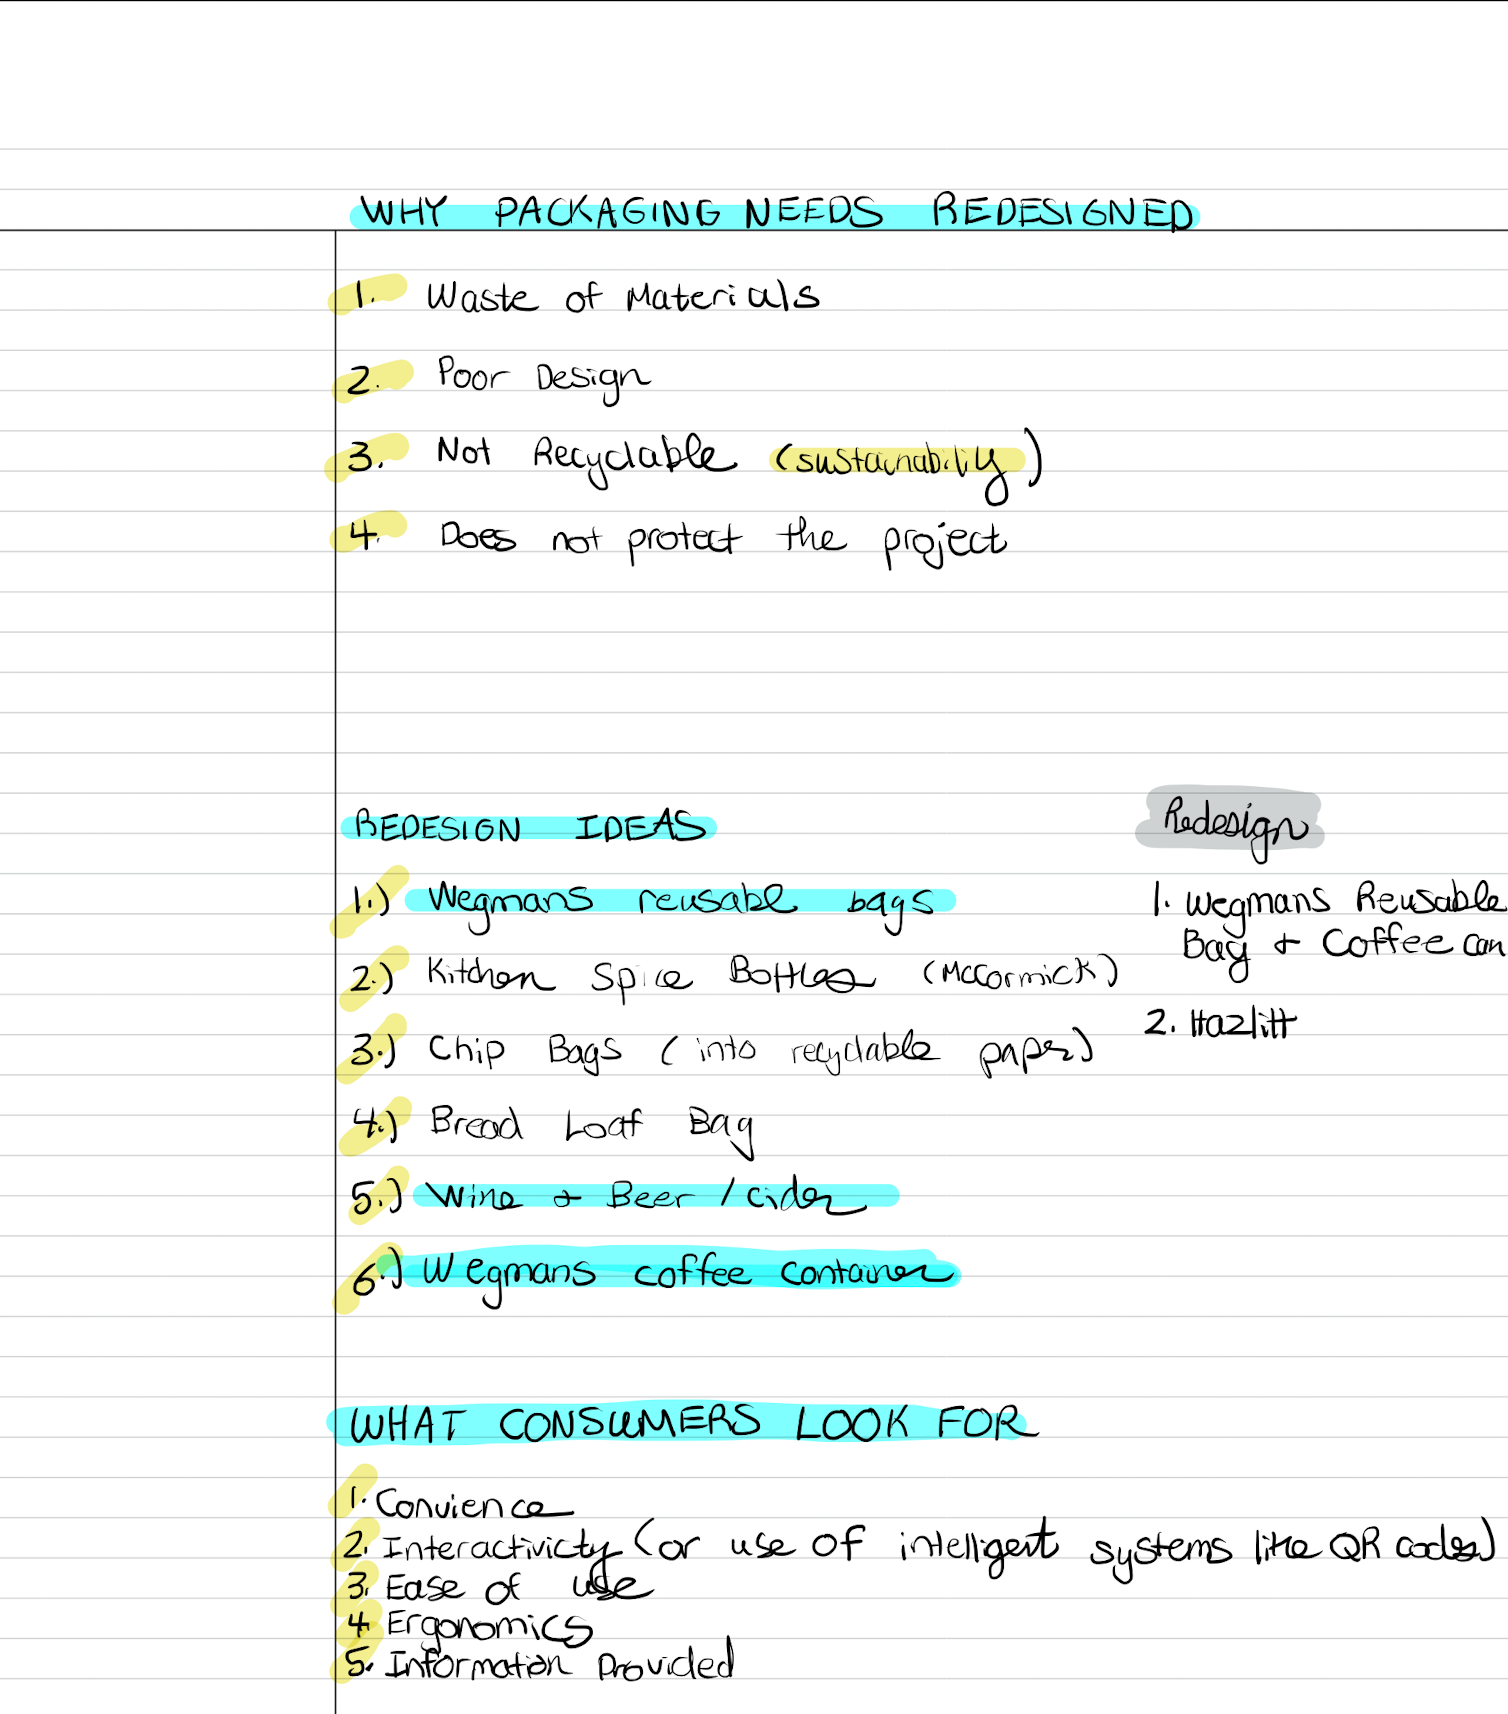 WHY PACKAGING NEEDS REDESIGNED
1. Waste of Materials
2. Poor Design
3. Not Recyclable (sustainability)
4. Does not protect the project
REDESIGN IDEAS
1.) Wegmans reusable bags
2.) Kitchen Spice Bottles (McCormick)
3.) Chip Bags (into recyclable paper)
4.) Bread Loaf Bag
5.) Wine + Beer / cider
6.) Wegmans coffee container
Redesign
1. Wegmans Reusable
Bag + Coffee can
2. Hazlitt
WHAT CONSUMERS LOOK FOR
1. Convience
2. Interactivicty (or use of intelligent systems like QR codes)
3. Ease of use
4. Ergonomics
5. Information Provided